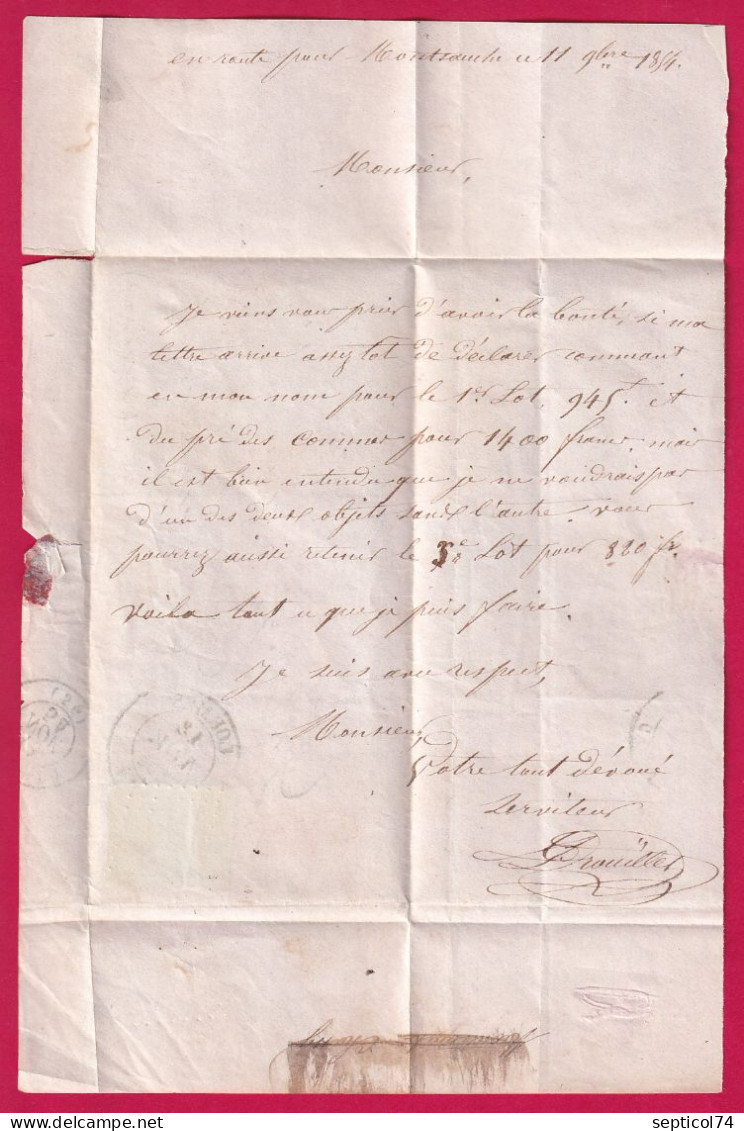 en route pour Montsauche ce 11 9bre 1854.
Monsieur,
Je viens vous prier d'avoir la bonté, si ma
lettre arrive assez tot de déclarer command
en mon nom pour le 1er Lot. 945f. et
du pré des commes pour 1400 francs, mais
il est bien entendu que je ne voudrais pas
d'un des deux objets sans l'autre. vous
pourrez aussi retenir le 5e Lot pour 820 fr.
voila tout ce que je puis faire.
Je suis avec respect,
Monsieur,
Votre tout dévoué
serviteur
Drouillet
septicol74